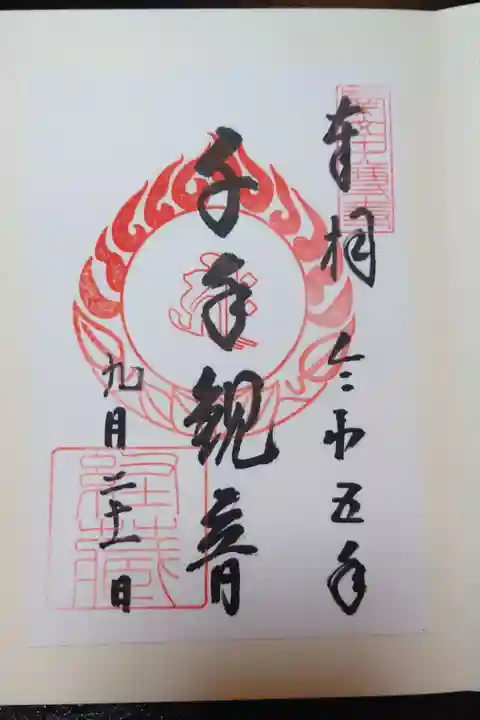 奉拝 令和五年
千手観音
九月二十一日
經藏